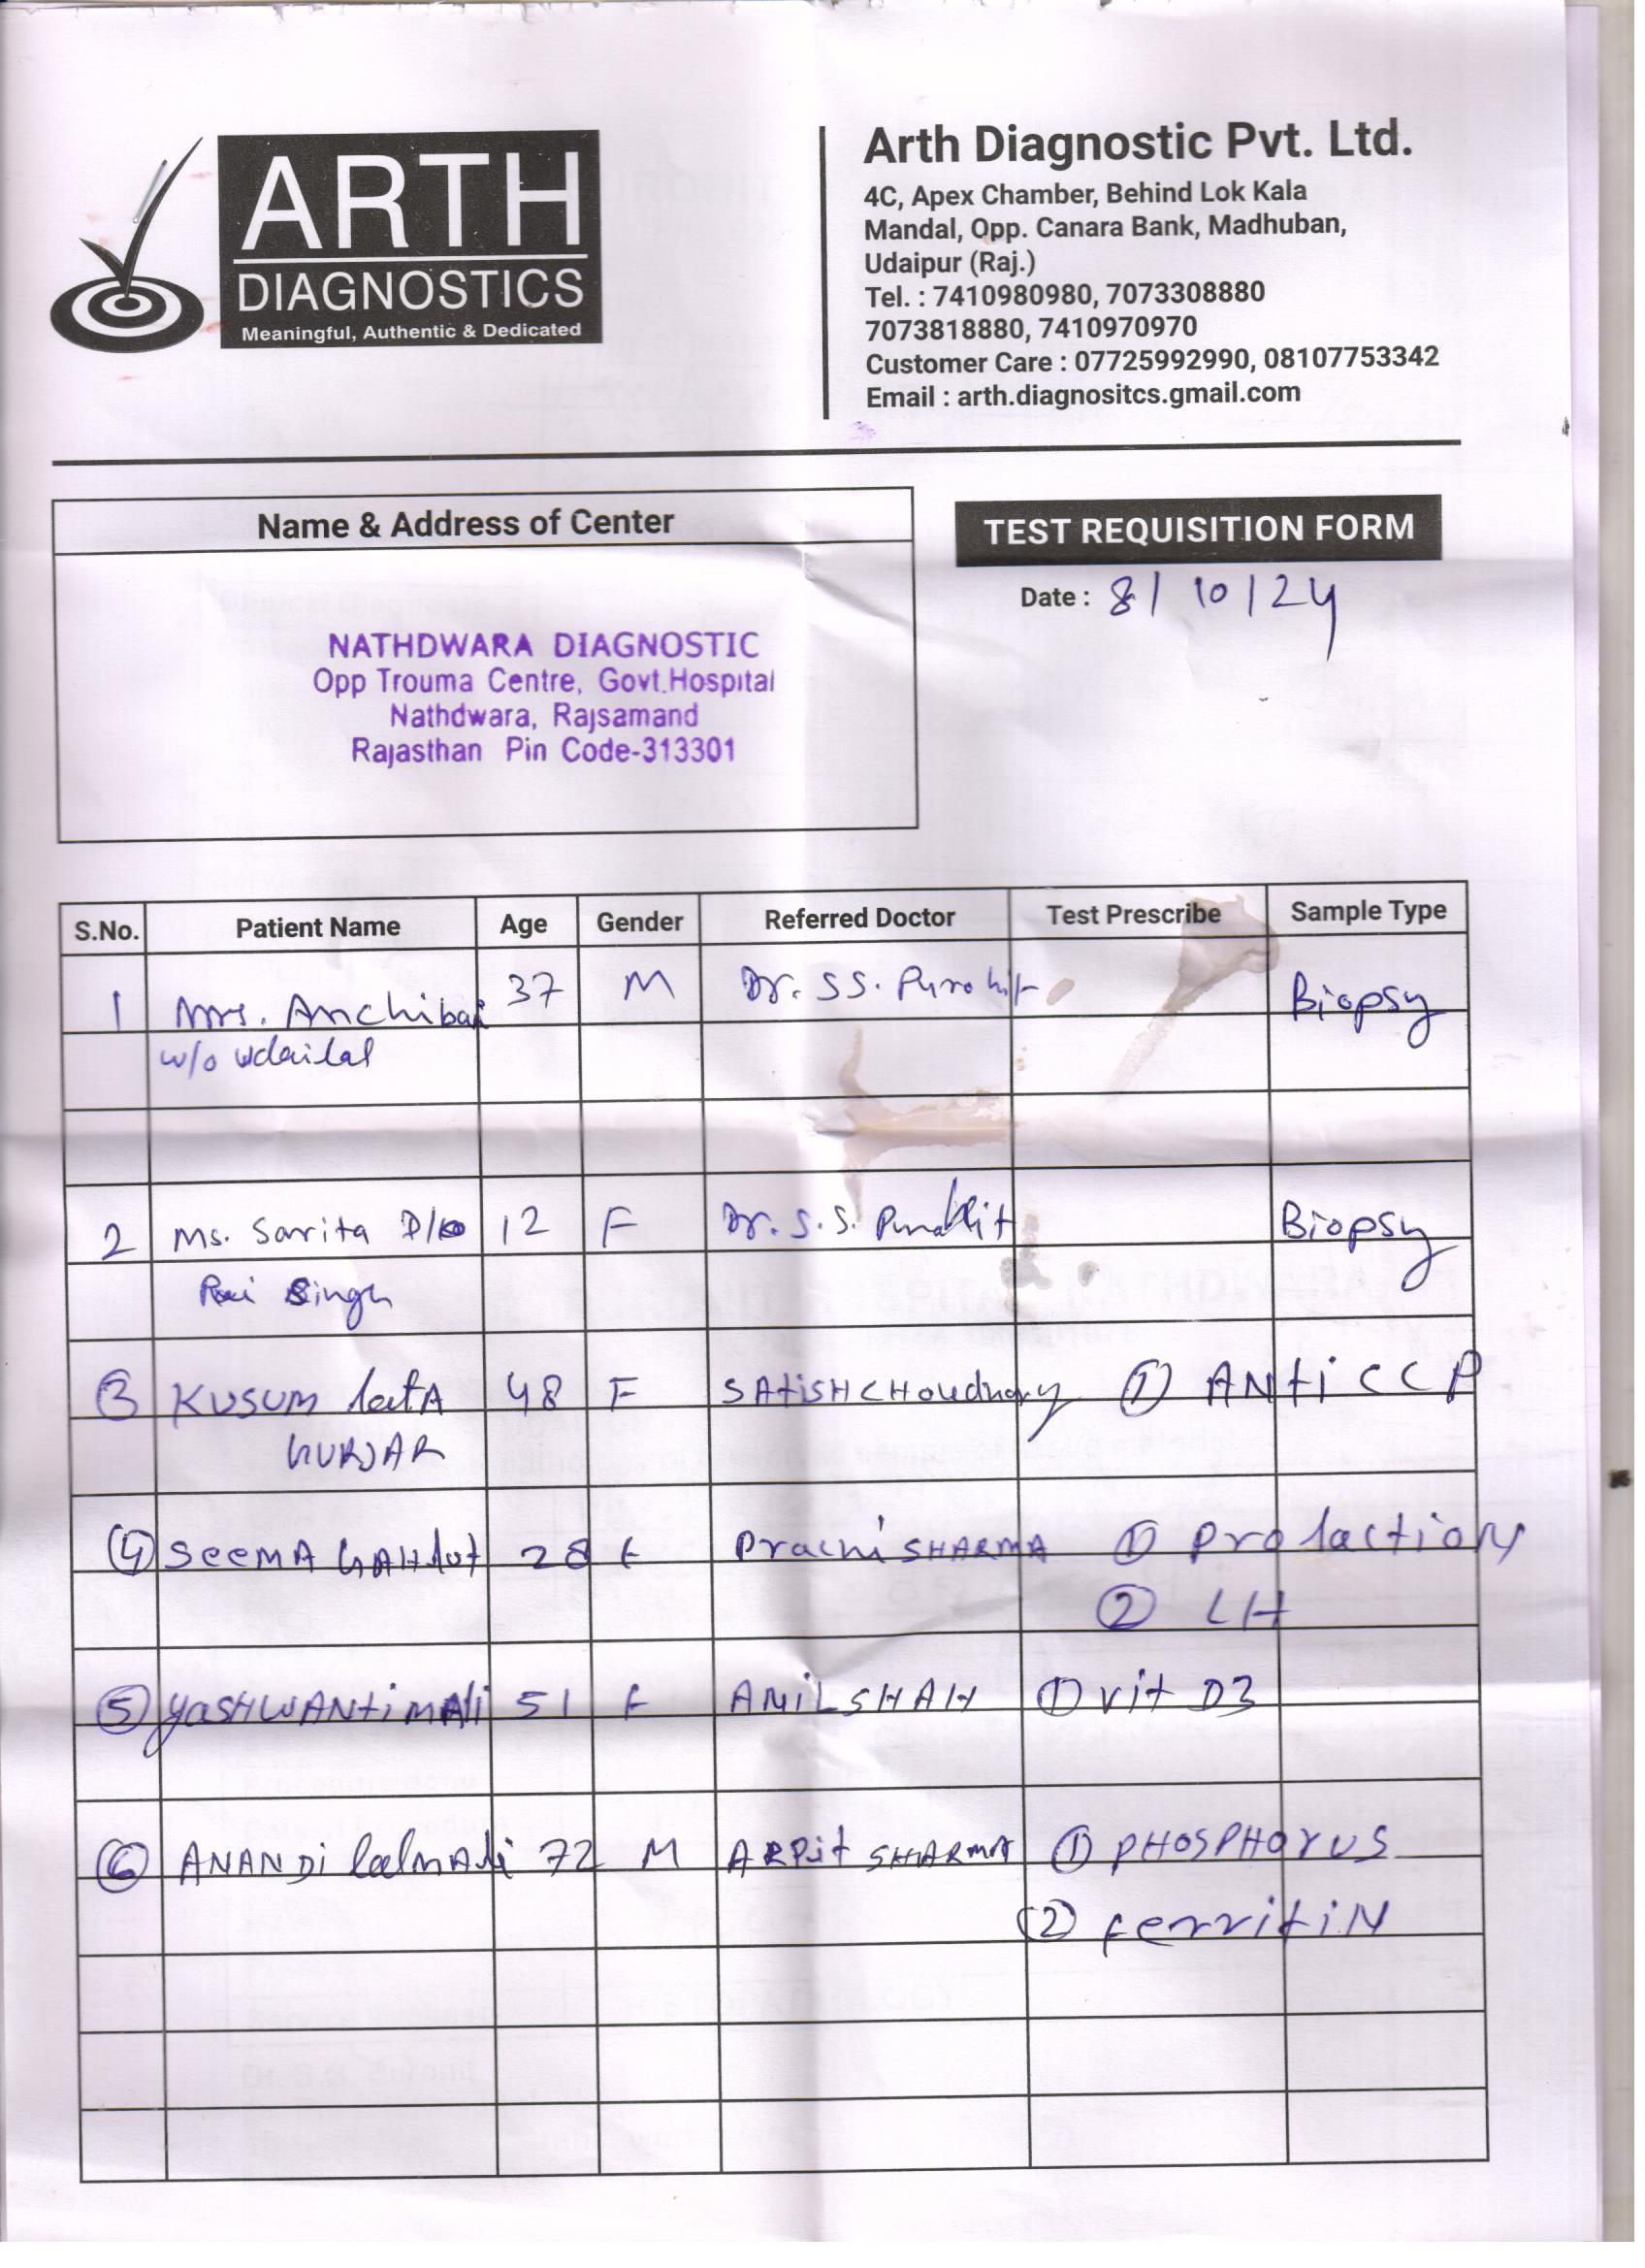 ARTH
DIAGNOSTICS
Meaningful, Authentic & Dedicated
Arth Diagnostic Pvt. Ltd.
4C, Apex Chamber, Behind Lok Kala
Mandal, Opp. Canara Bank, Madhuban,
Udaipur (Raj.)
Tel. : 7410980980, 7073308880
7073818880, 7410970970
Customer Care : 07725992990, 08107753342
Email : arth.diagnositcs.gmail.com
Name & Address of Center
NATHDWARA DIAGNOSTIC
Opp Trouma Centre, Govt.Hospital
Nathdwara, Rajsamand
Rajasthan Pin Code-313301
TEST REQUISITION FORM
Date : 8/10/24
S.No. Patient Name Age Gender Referred Doctor Test Prescribe Sample Type
1 Mrs. Anchibai 37 M Dr. SS. Purohit Biopsy
w/o Udailal
2 Ms. Sarita D/o 12 F Dr. S.S. Purohit Biopsy
Singh
3 KUSUM latA 48 F SAtiSH CHoudhary 1 ANti CCP
GURJAR
4 SeeMA GAHlot 28 F Prachi SHARMA 1 Prolaction
2 LH
5 yaSHWANti MAli 51 F ANiL SHAH 1 vit D3
6 ANANDi lalmAli 72 M ARPit SHARMA 1 PHOSPHORUS
2 FerritiN